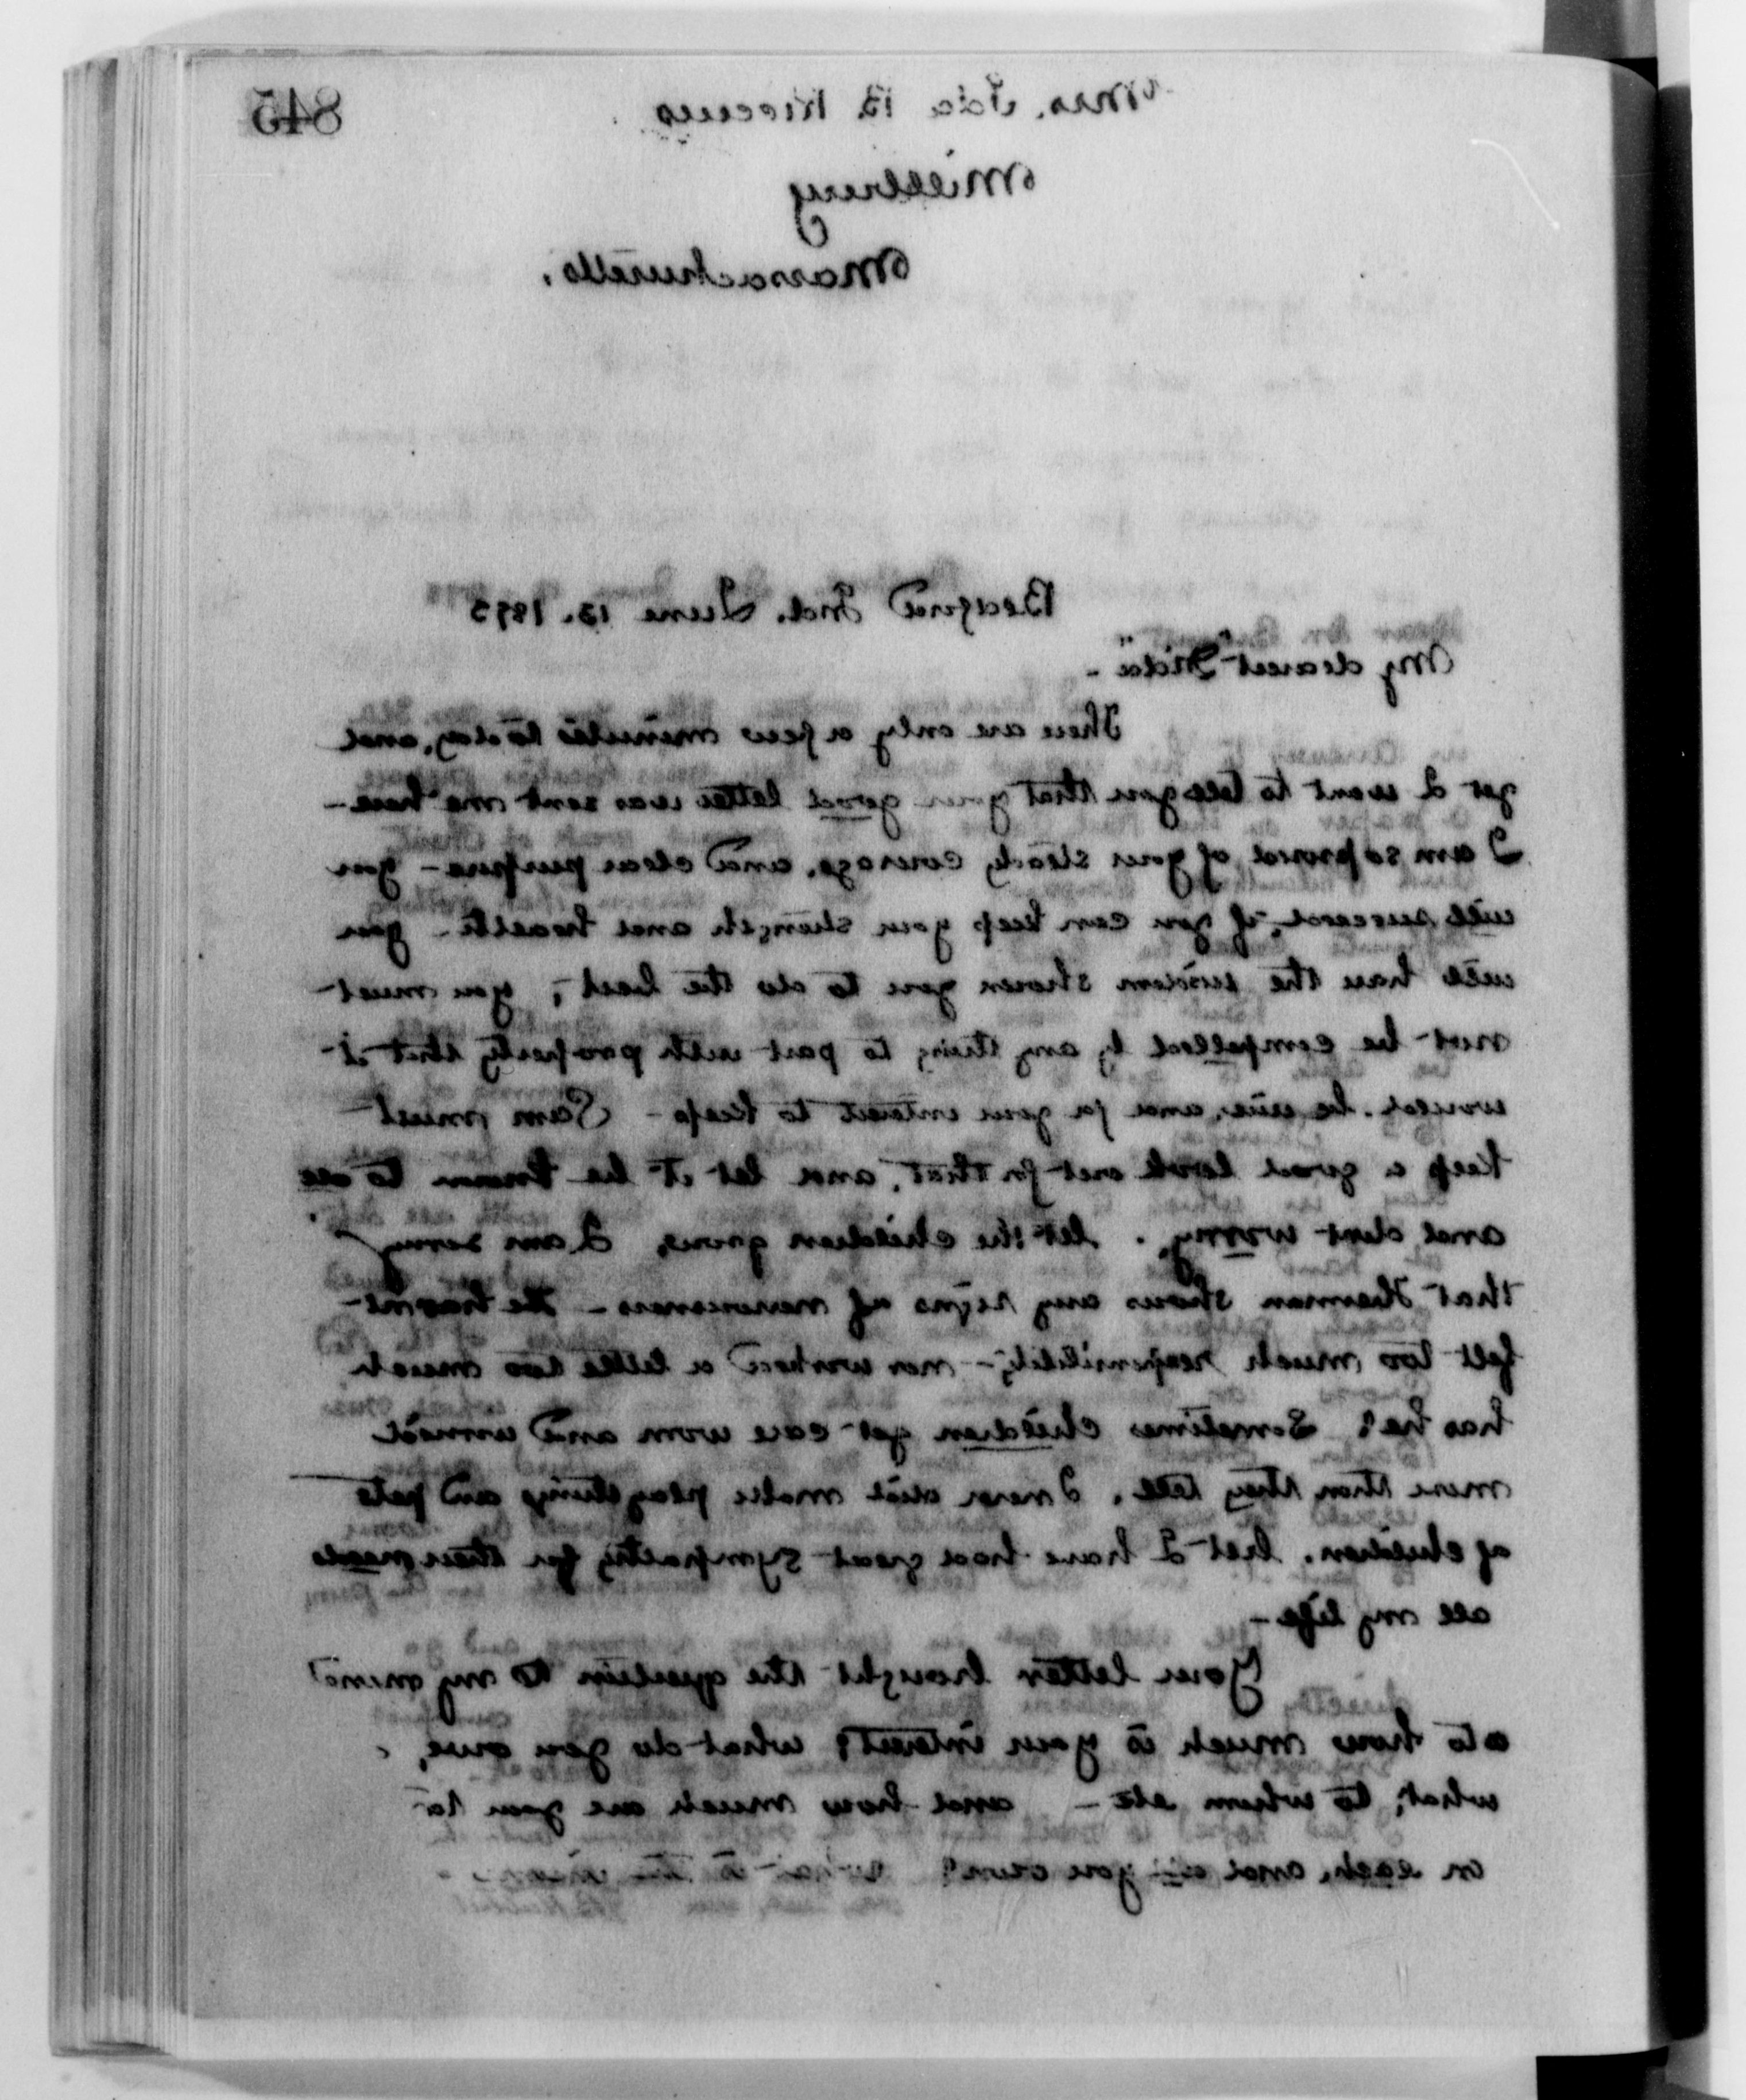 845
Mrs. Ida B. Riccius
Millbury
Massachusetts.
Bedford Ind. June 13. 1893
My dearest "Idä" -
There are only a few minutes today, and
yet I want to tell you that your good letter was sent me here -
I am so proud of your steady courage, and clear purpose - you
will succeed, if you can keep your strength and health - you
will have the wisdom shown you to do the best; you must
not be compelled by any thing to part with property that it
would be wise, and for your interest to keep - Sam must
keep a good look out for that, and let it be known to all
and dont worry. let the children grow, I am sorry
that Herman shows any signs of nervousness - He has not
felt too much responsibility - nor worked a little too much
has he? Sometimes children get care worn and worried
more than they tell. I never did make playthings and pets
of children, but I have had great sympathy for their needs
all my life -
Your letter brought the question to my mind
as to how much is your interest? what do you owe,
what, to whom etc - and how much are you to
on each, and all you owe? what is the